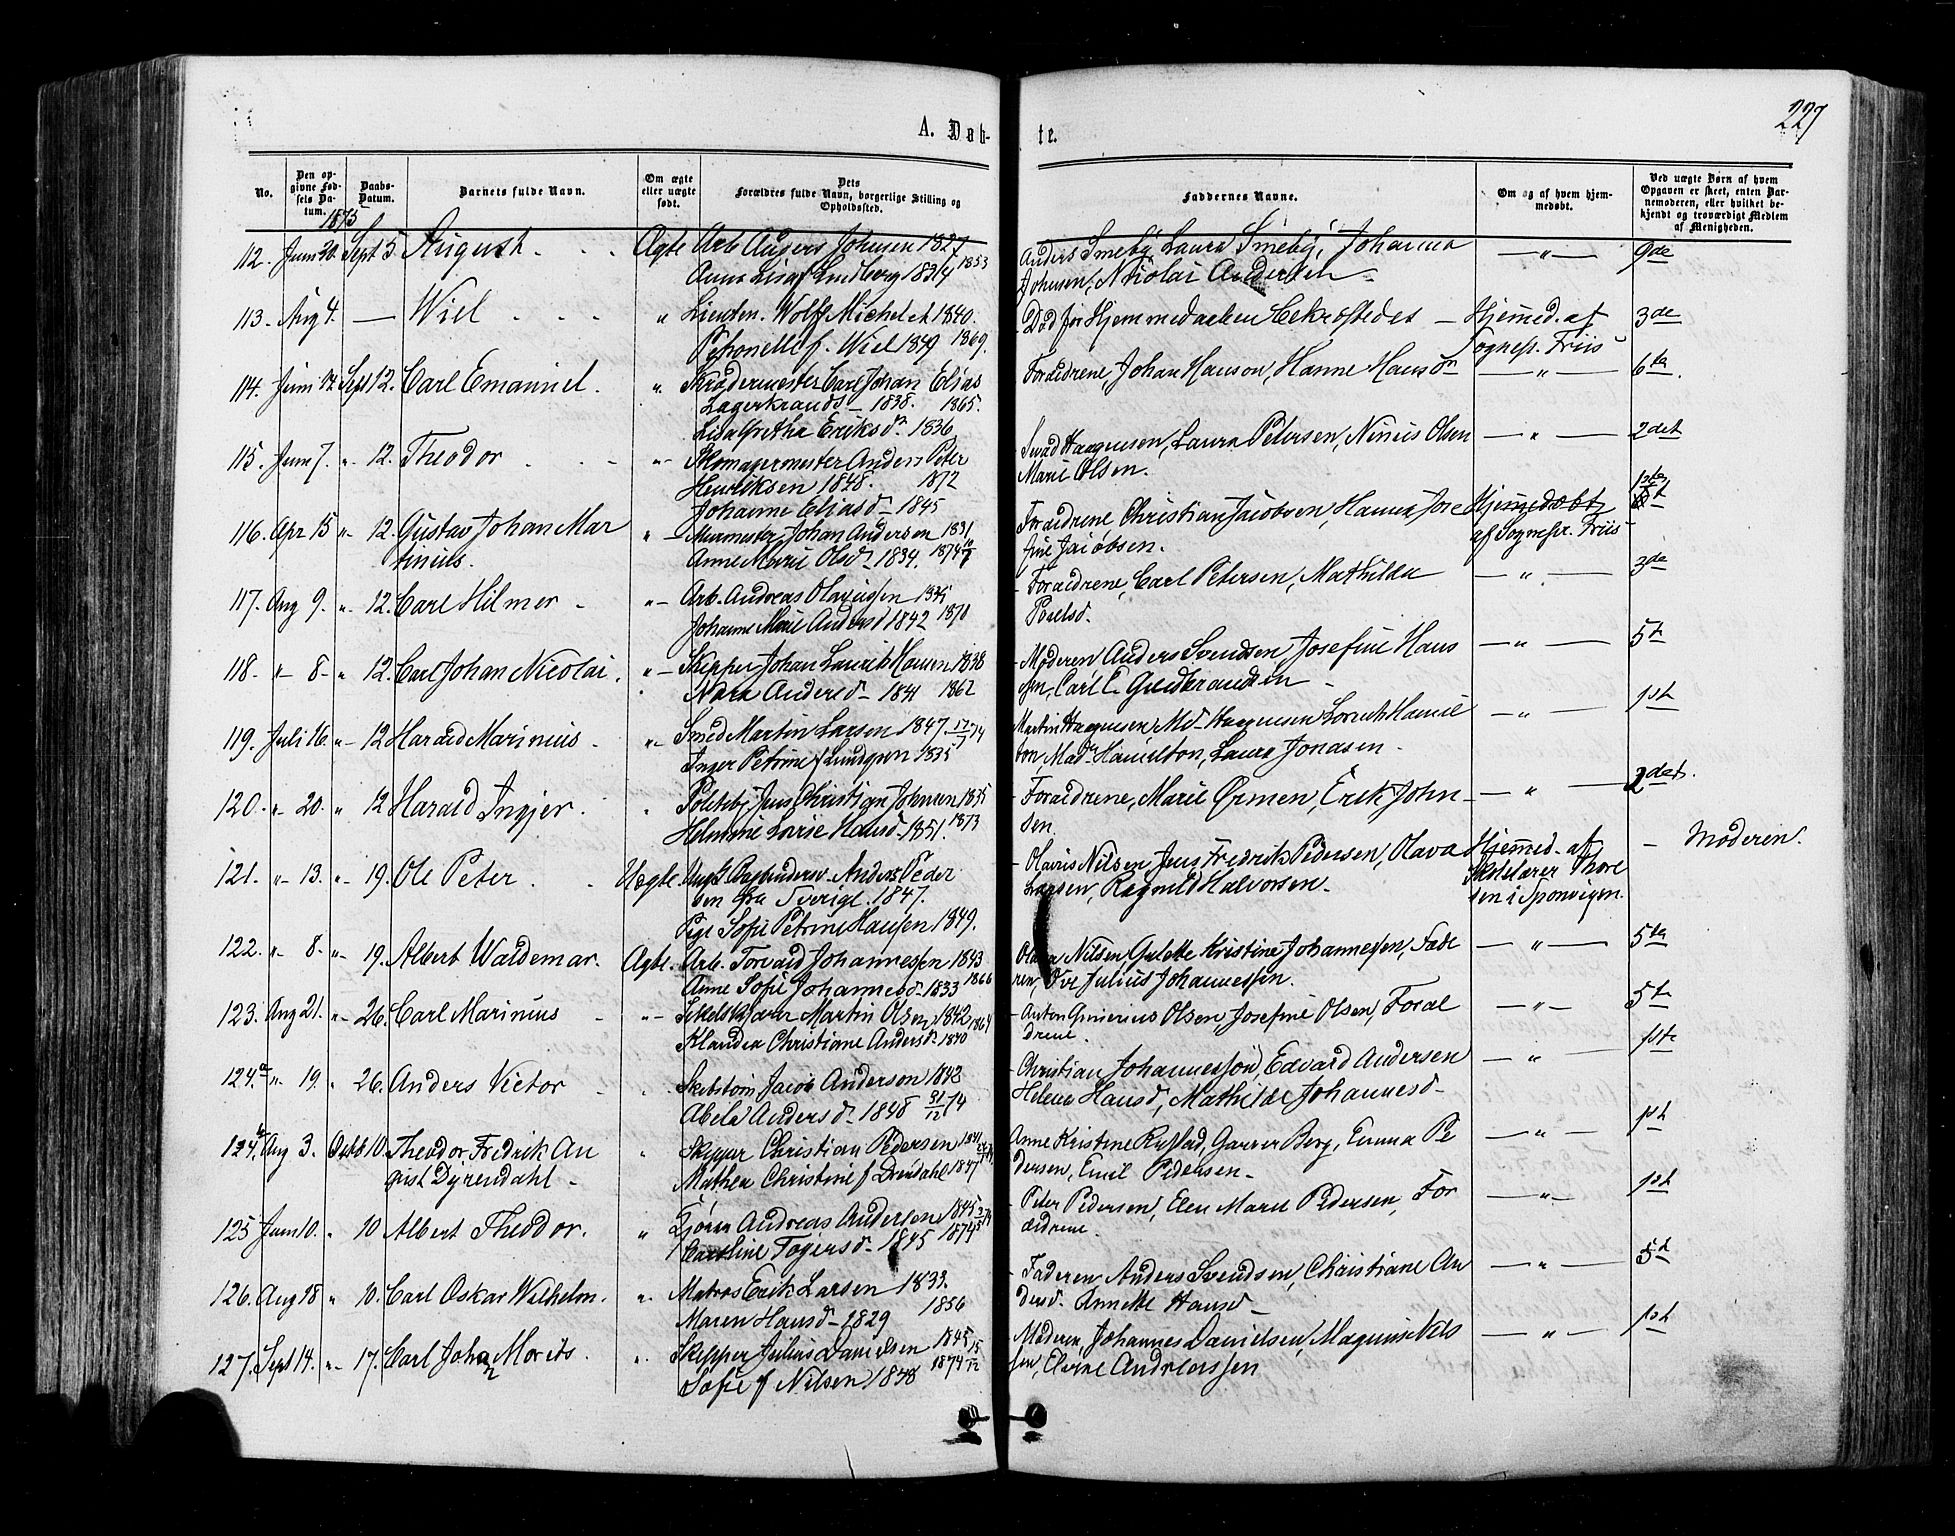 227
A. Døb-
te.
No.
Den op-
givne Fød-
sels Da-
tum.
Daabs-
Datum.
Barnets fulde Navn.
Om ægte
eller uægte
født.
Dets
Forældres fulde Navn, borgerlige Stilling og
Opholdssted.
Faddernes Navne.
Om og af hvem hjem-
medøbt.
Ved uægte Børn af hvem
Opgaven er skeet, enten Bar-
nemoderen, eller hvilket be-
kjendt og troværdigt Medlem
af Menigheden.
1875
112. Juni 20. Sept 5 August Ægte Arb. Anders Johnsen 1827
Anna Lisa f Lindberg 1834 1853
Anders Smeby, Laura Smeby, Johanna
Johnsen, Nikolai Andersen
— " — 9de
113. Aug 4. — Wiel " Lieutn. Wolff Michelet 1840.
Petronelle f. Wiel 1849 1869.
Død før Hjemmedaaben bekræftedes — Hjemmed. af 3de
Sognepr. Friis
114. Juni 12 Sept 12. Carl Emanuel. " Skrædermester Carl Johan Elias
Lagerkrands — 1838. 1865.
Lisa Gretha Eriksd. 1836
Forældrene, Johan Hanson, Hanne Hansdn — " — 6te.
115. Juni 7. " 12. Theodor " Skomagermester Anders Peter
Henriksen 1848. 1872
Johanne Eliasd — 1845
Haagensen, Laura Petersen, Ninius Olsen — " — 2det
Marie Olsen.
116. Apr 15 " 12. Gustav Johan Mar " Murmester Johan Andersen 1831
tinius. Anne Marie Olsd — 1834. 1874
Forældrene, Christian Jacobsen, Hanna Jose Hjemmedøbt 1ste
fine Jacobsen. af Sognepr. Friis
117. Aug 9. " 12. Carl Hilmer " Arb. Andreas Olausen 1835
Johanne Marie Andersd 1842 1871
Forældrene, Carl Petersen, Mathilda — " — 3de
118. " 8 " 12. Carl Johan Nicolai. " Skipper Johan Laurits Hansen 1838
Andersd — 1841 1862
Moderen Anders Svendsen Josefine Hans — " — 5te
sen, Carl E. Gudbrandsen
119. Juli 16 " 12 Harald Marinius " Smed Martin Larsen 1847. 17/7 74
Inger Petrine f Lundgren 1835
Martin Haagensen, Md. Haagensen Lorents Hamil — " — 1st
ton, Mad. Hamilton, Laura Jonasen
120. " 20. " 12 Harald Ingjer. " Politibj. Jens Christian Johnsen 1835
Helmine Lovise Hansd 1851. 1873
Forældrene, Marie Ørmen, Erik John — " — 2det.
sen.
121. " 13. " 19. Ole Peter Uægte Ungk. Anders Peder
sen fra Sverige. 1847.
Pige Sofie Petrine Hansen 1849.
Olavis Nilsen, Jens Fredrik Pedersen, Olava Hjemmed. af — Moderen.
Larsen, Ragnild Halvorsen. Skolelærer Thore
sen i Sponvigen.
122. " 8. " 19. Albert Waldemar. Ægte. Arb. Torvald Johannessen 1843
Anne Sofie Johannesd 1833 1866
Nilsen, Gulette Kristine Johannessen, Fade — " — 5te
ren, Ove Julius Johannessen.
123. Aug 21. " 26. Carl Marinius " Martin Olsen 1842 1864
Klaudia Christiane Andersd 1840
Anton Olsen, Josefine Olsen, Foræl — " — 5te
drene.
124.a " 19. " 26. Anders Victor " Jacob Anderson 1842
Abela Andersd — 1848 31/12 74
Christian Johannesson, Edvard Andersen — " — 1ste
Helena Hansd, Mathilde Johannesd
124.b Aug 3. Octb 10. Theodor Fredrik Au " Skipper Christian Pedersen 1841
gust Dyrendahl Mathea Christine f Drendahl 1847
Anne Kristine Rustad, Berg, Emma Pe — " — 1st
dersen, Emil Pedersen
125 Juni 10. " 10 Albert Theodor. " Andreas Anderson 1845
Caroline Tøgersd 1845 1874
Peter Pedersen, Elen Marie Pedersen, For — " — 1st
ældrene.
126. Aug 18 " 10. Carl Oskar Wilhelm. " Matros Erik Larsen 1833.
Maren Hansd 1829 1856
Faderen, Anders Svendsen, Christiane An — " — 5d
dersd. Annette Hansd
127. Sept 14. " 17. Carl Johan Morits. " Skipper Julius Danielsen 1845
Sofie f Nilsen 1848 1874 15/12
Moderen, Johannes Danielsen, Magnus Niel — " — 1st
sen, Andreassen